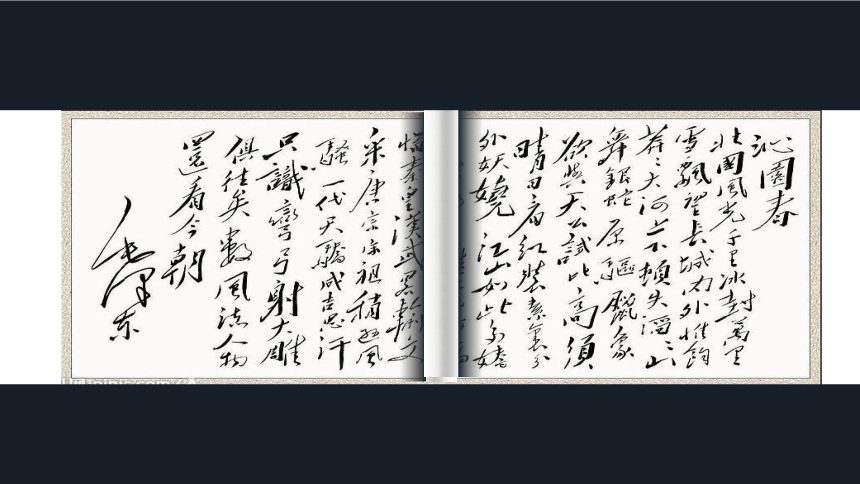 沁園春
北國風光千里冰封萬里
雪飄望長城內外惟餘
莽〻大河上下頓失滔〻山
舞銀蛇原驅臘象
欲與天公試比高須
晴日看紅裝素裹分
外妖嬈江山如此多嬌
惜秦皇漢武略輸文
采唐宗宋祖稍遜風
騷一代天驕成吉思汗
只識彎弓射大雕
俱往矣數風流人物
還看今朝
毛澤東